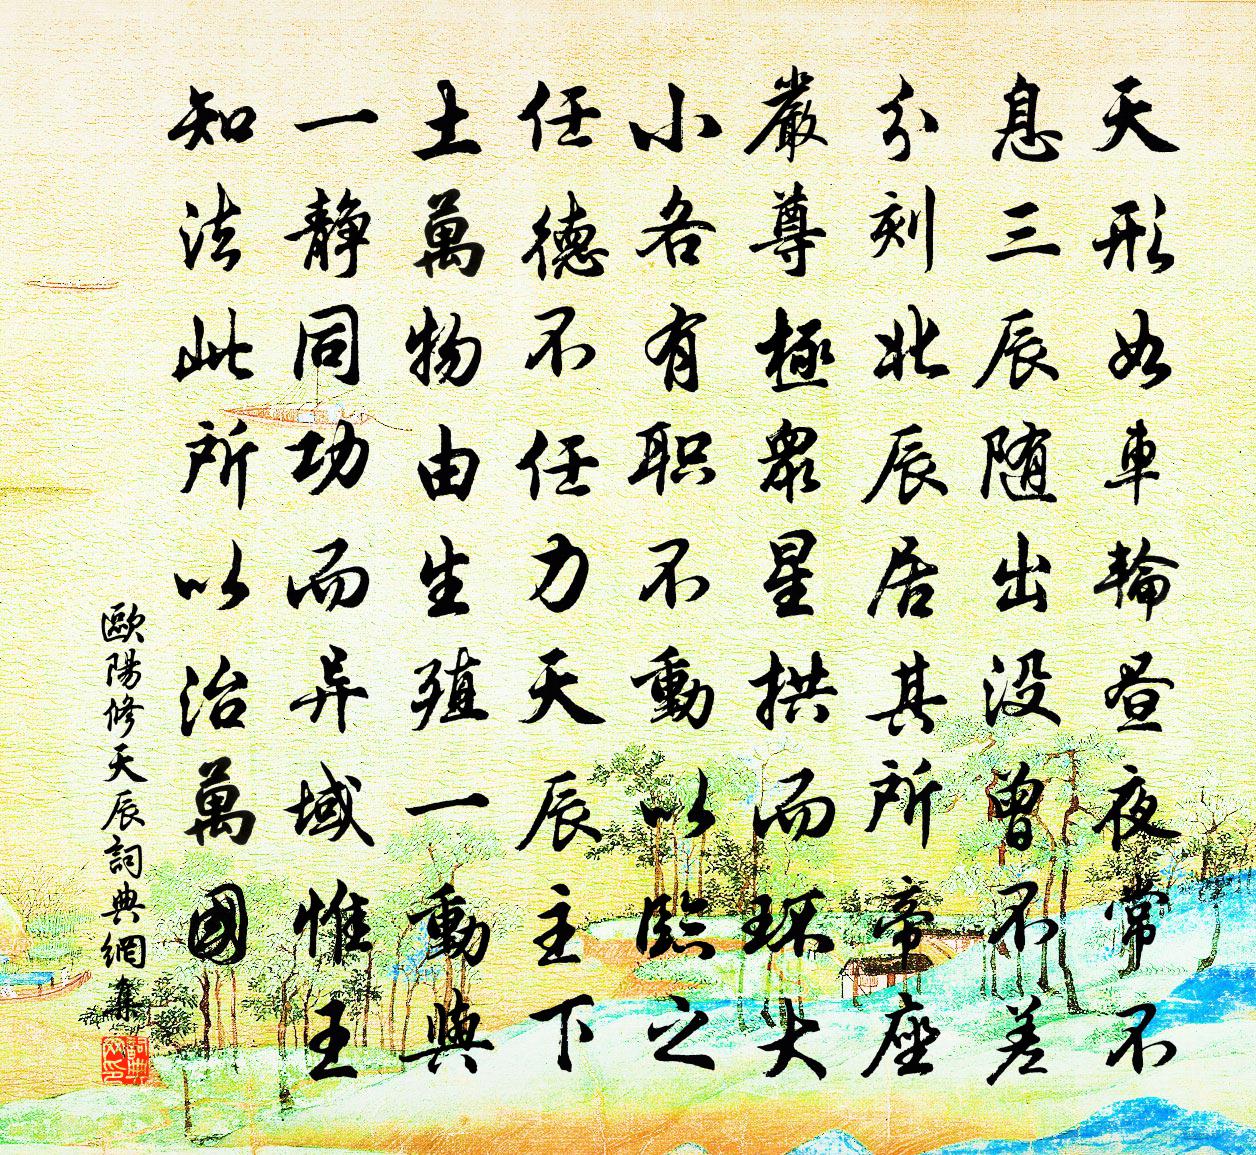 天形如車輪昼夜常不
息三辰随出没曾不差
分刻北辰居其所帝座
嚴尊極衆星拱而环大
小各有职不動以臨之
任德不任力天辰主下
土萬物由生殖一動與
一静同功而异域惟王
知法此所以治萬國
歐陽修天辰詞典網集